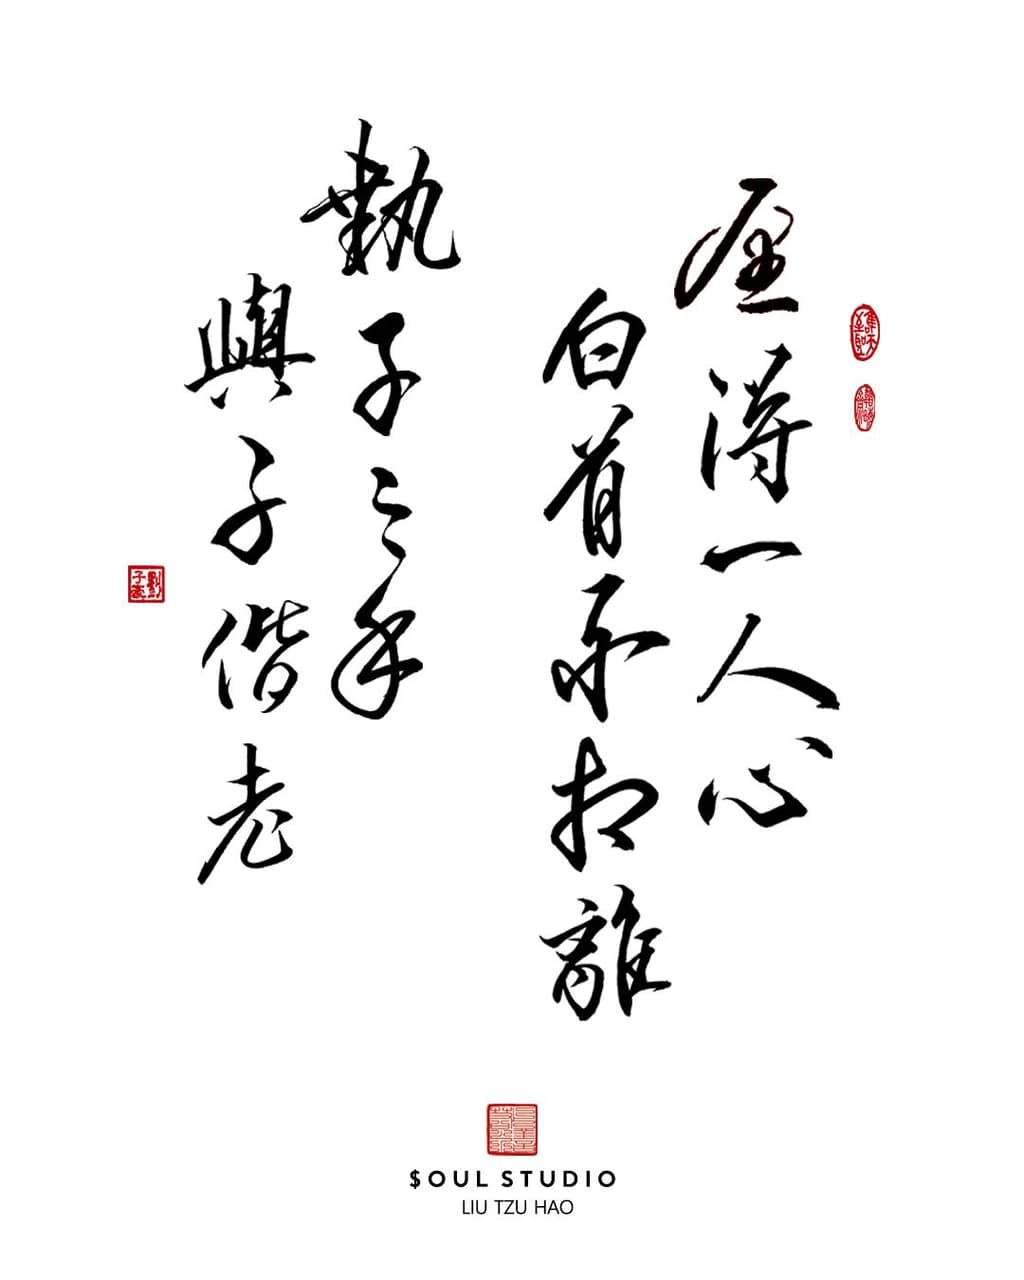 愿得一人心
白首不相離
執子之手
與子偕老
劉子豪
$OUL STUDIO
LIU TZU HAO